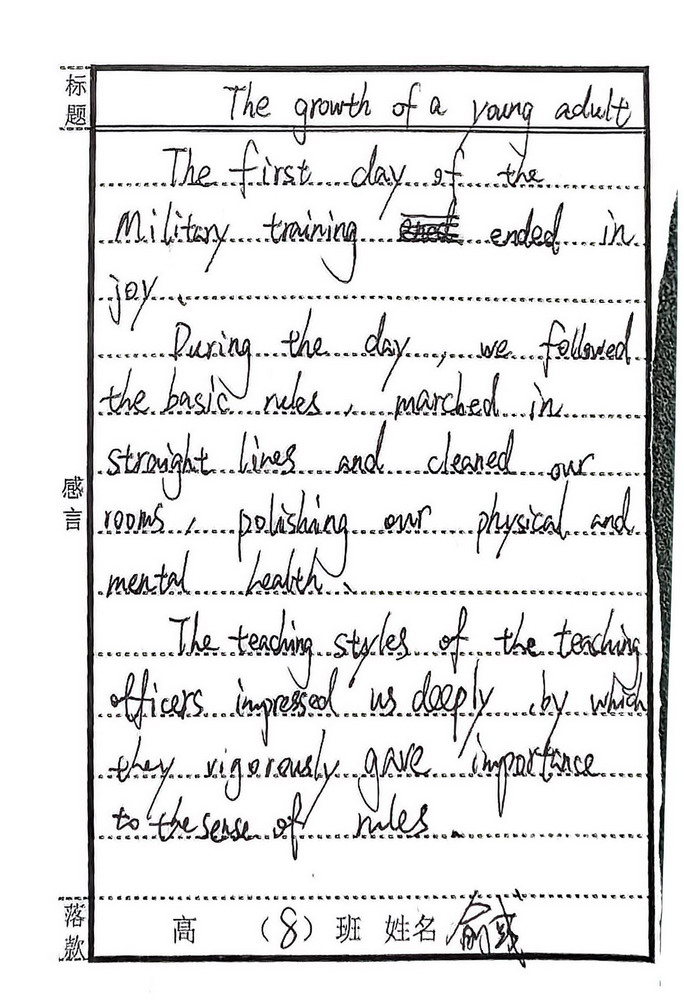 标题
The growth of a young adult
The first day of the
Military training ended in
joy.
During the day, we followed
the basic rules, marched in
straight lines and cleaned our
感言
rooms, polishing our physical and
mental health.
The teaching styles of the teaching
officers impressed us deeply, by which
they vigorously gave importance
to the sense of rules.
落款
高 （8）班 姓名 俞